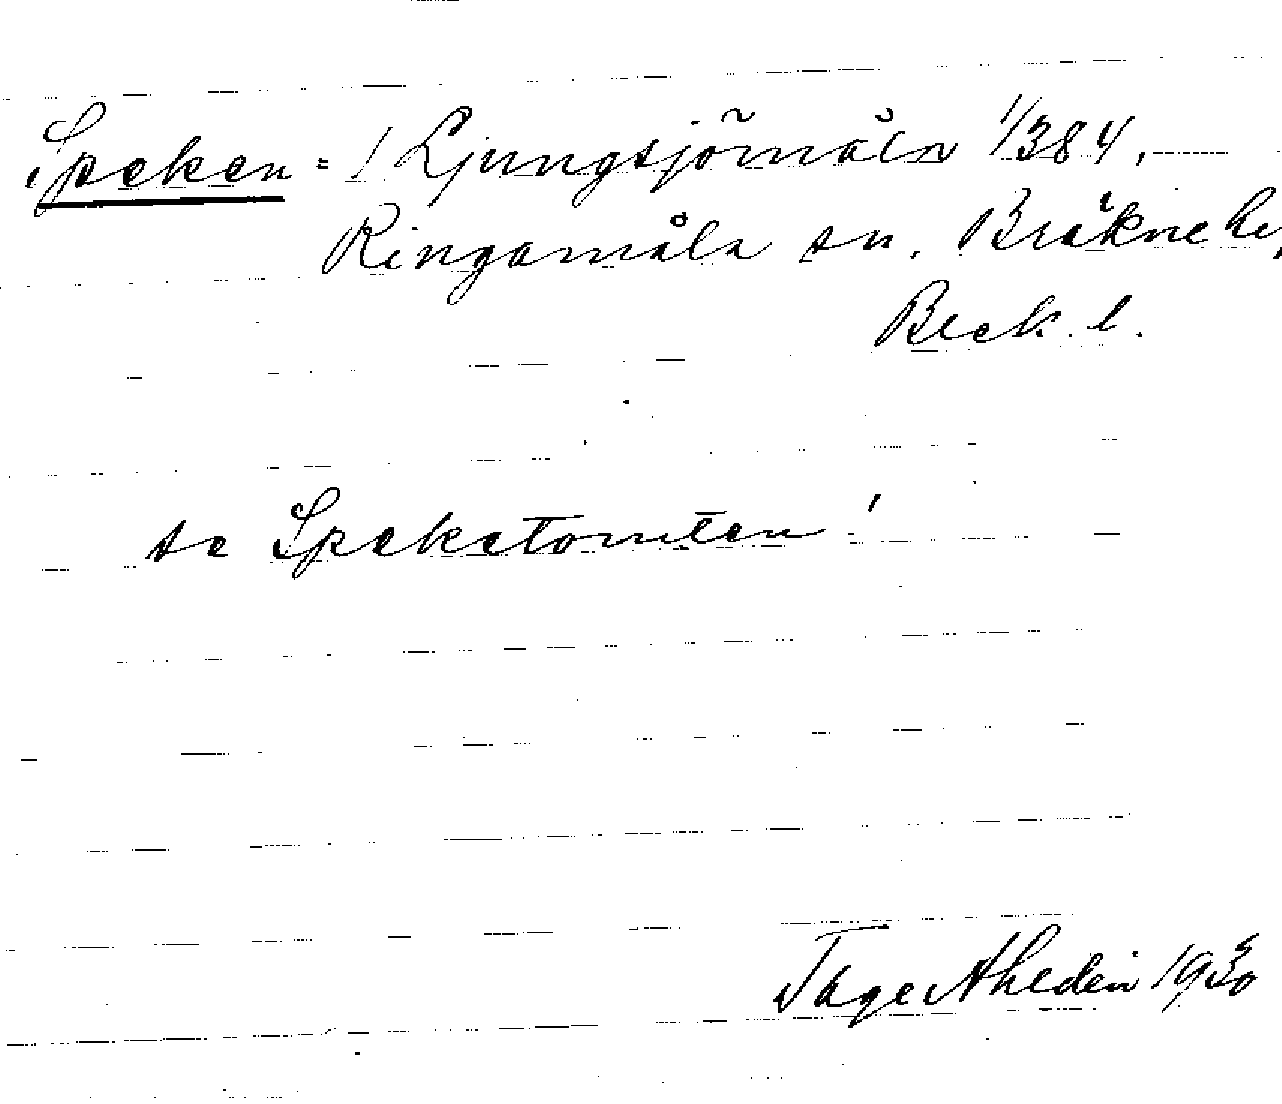 Speken = 1 Ljungsjömåla 1/384,
Ringamåla sn. Bräkne h,
Bleck. l.
se Speketomten!
Tage Ahldén 1930